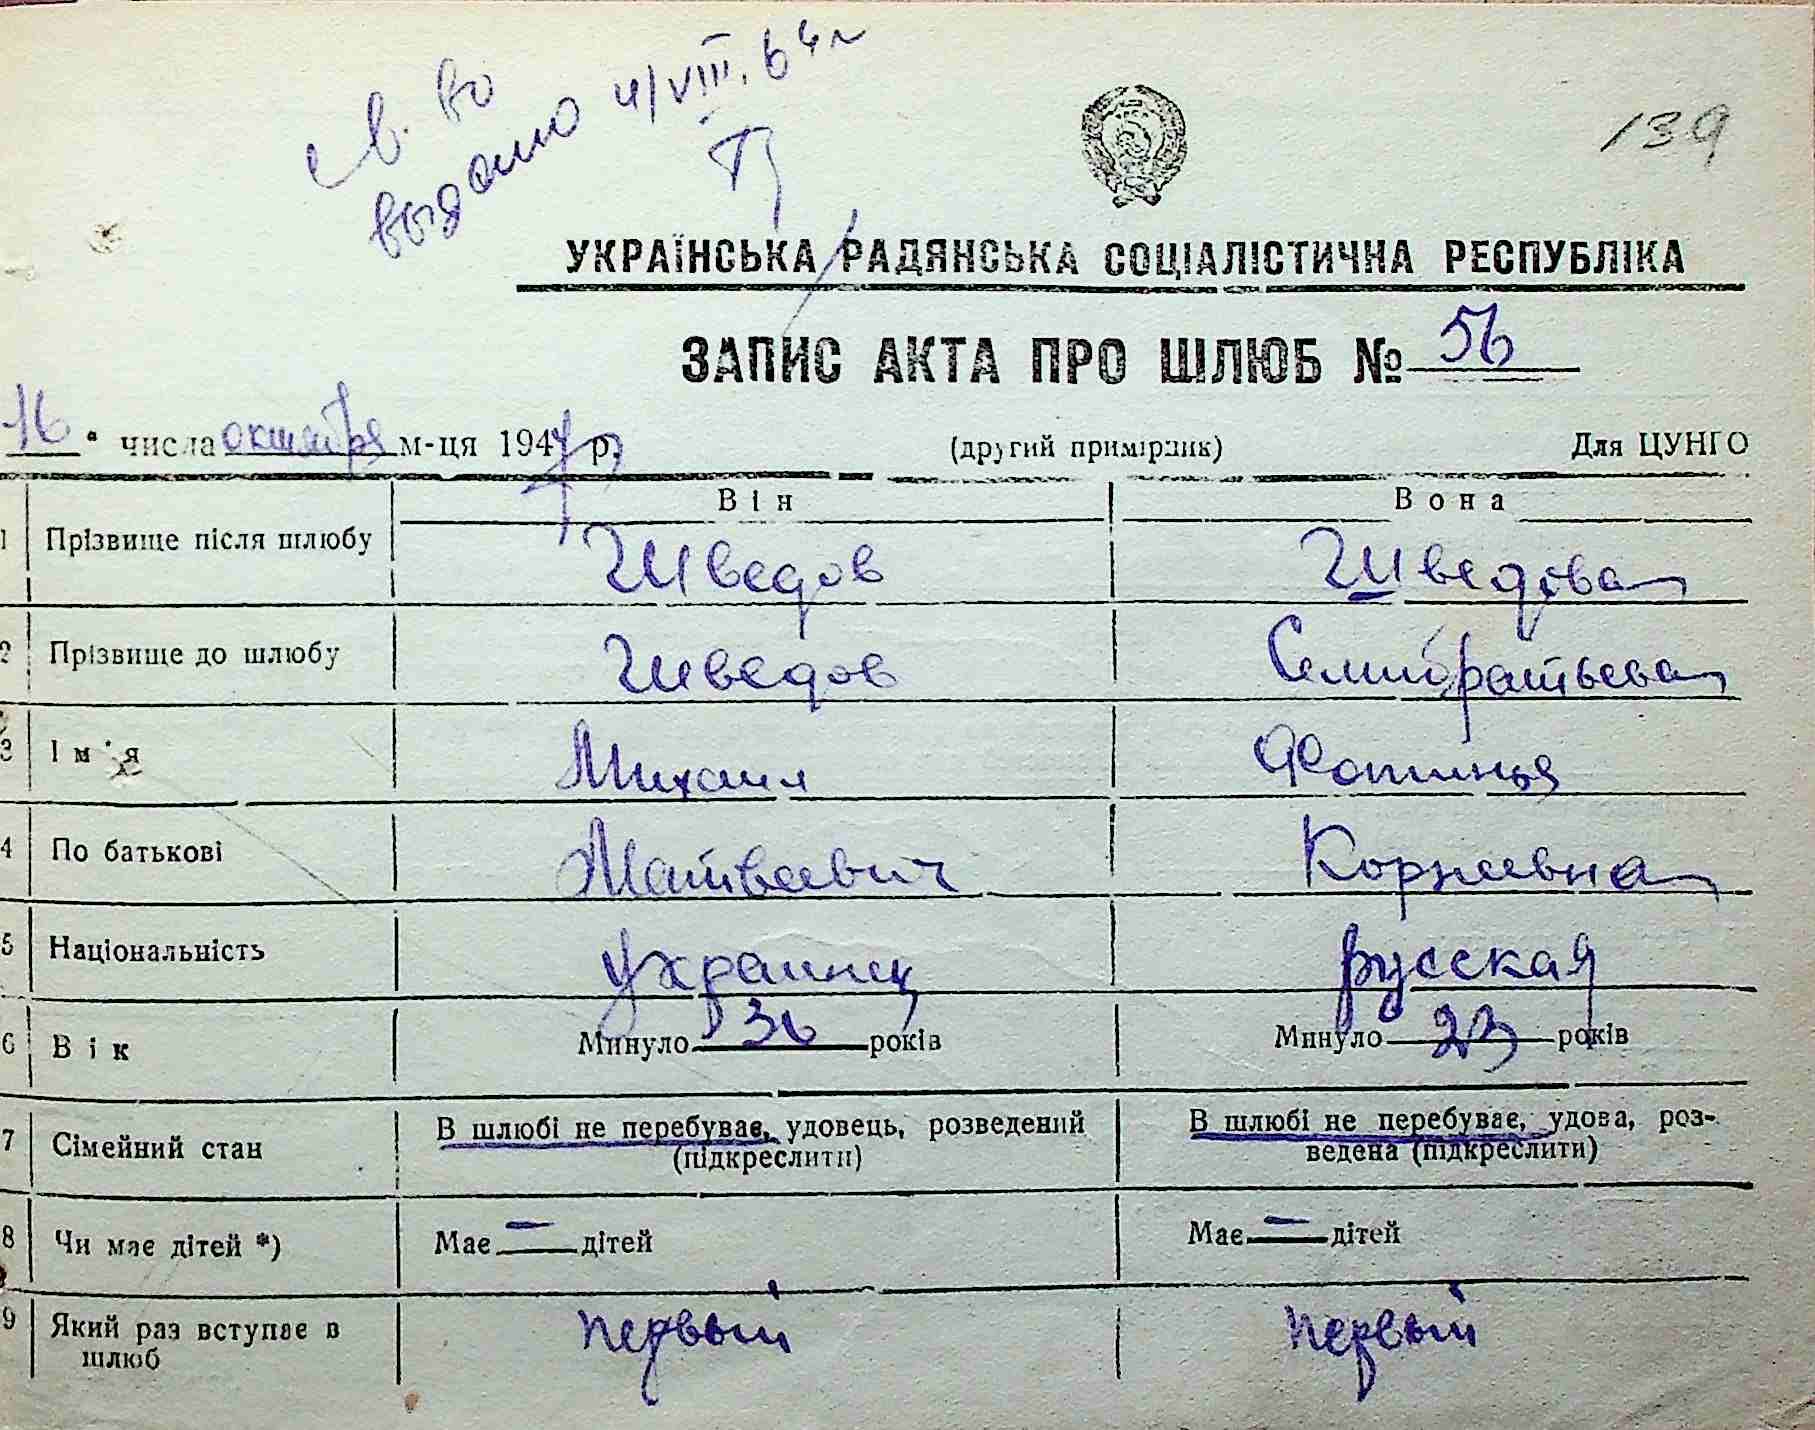 св. во
выдано 4/VIII. 64 г
139
УКРАЇНСЬКА РАДЯНСЬКА СОЦІАЛІСТИЧНА РЕСПУБЛІКА
ЗАПИС АКТА ПРО ШЛЮБ № 56
16 " числа октября м-ця 1947 р.
(другий примірник)
Для ЦУНГО
Він
Вона
1 Прізвище після шлюбу Шведов Шведова
2 Прізвище до шлюбу Шведов Семибратьева
3 Ім'я Михаил Фотинья
4 По батькові Матвеевич Корнеевна
5 Національність украинец русская
6 Вік Минуло 36 років Минуло 23 років
7 Сімейний стан В шлюбі не перебуває, удовець, розведений (підкреслити) В шлюбі не перебуває, удова, роз-
ведена (підкреслити)
8 Чи має дітей *) Має — дітей Має — дітей
9 Який раз вступає в первый первый
шлюб